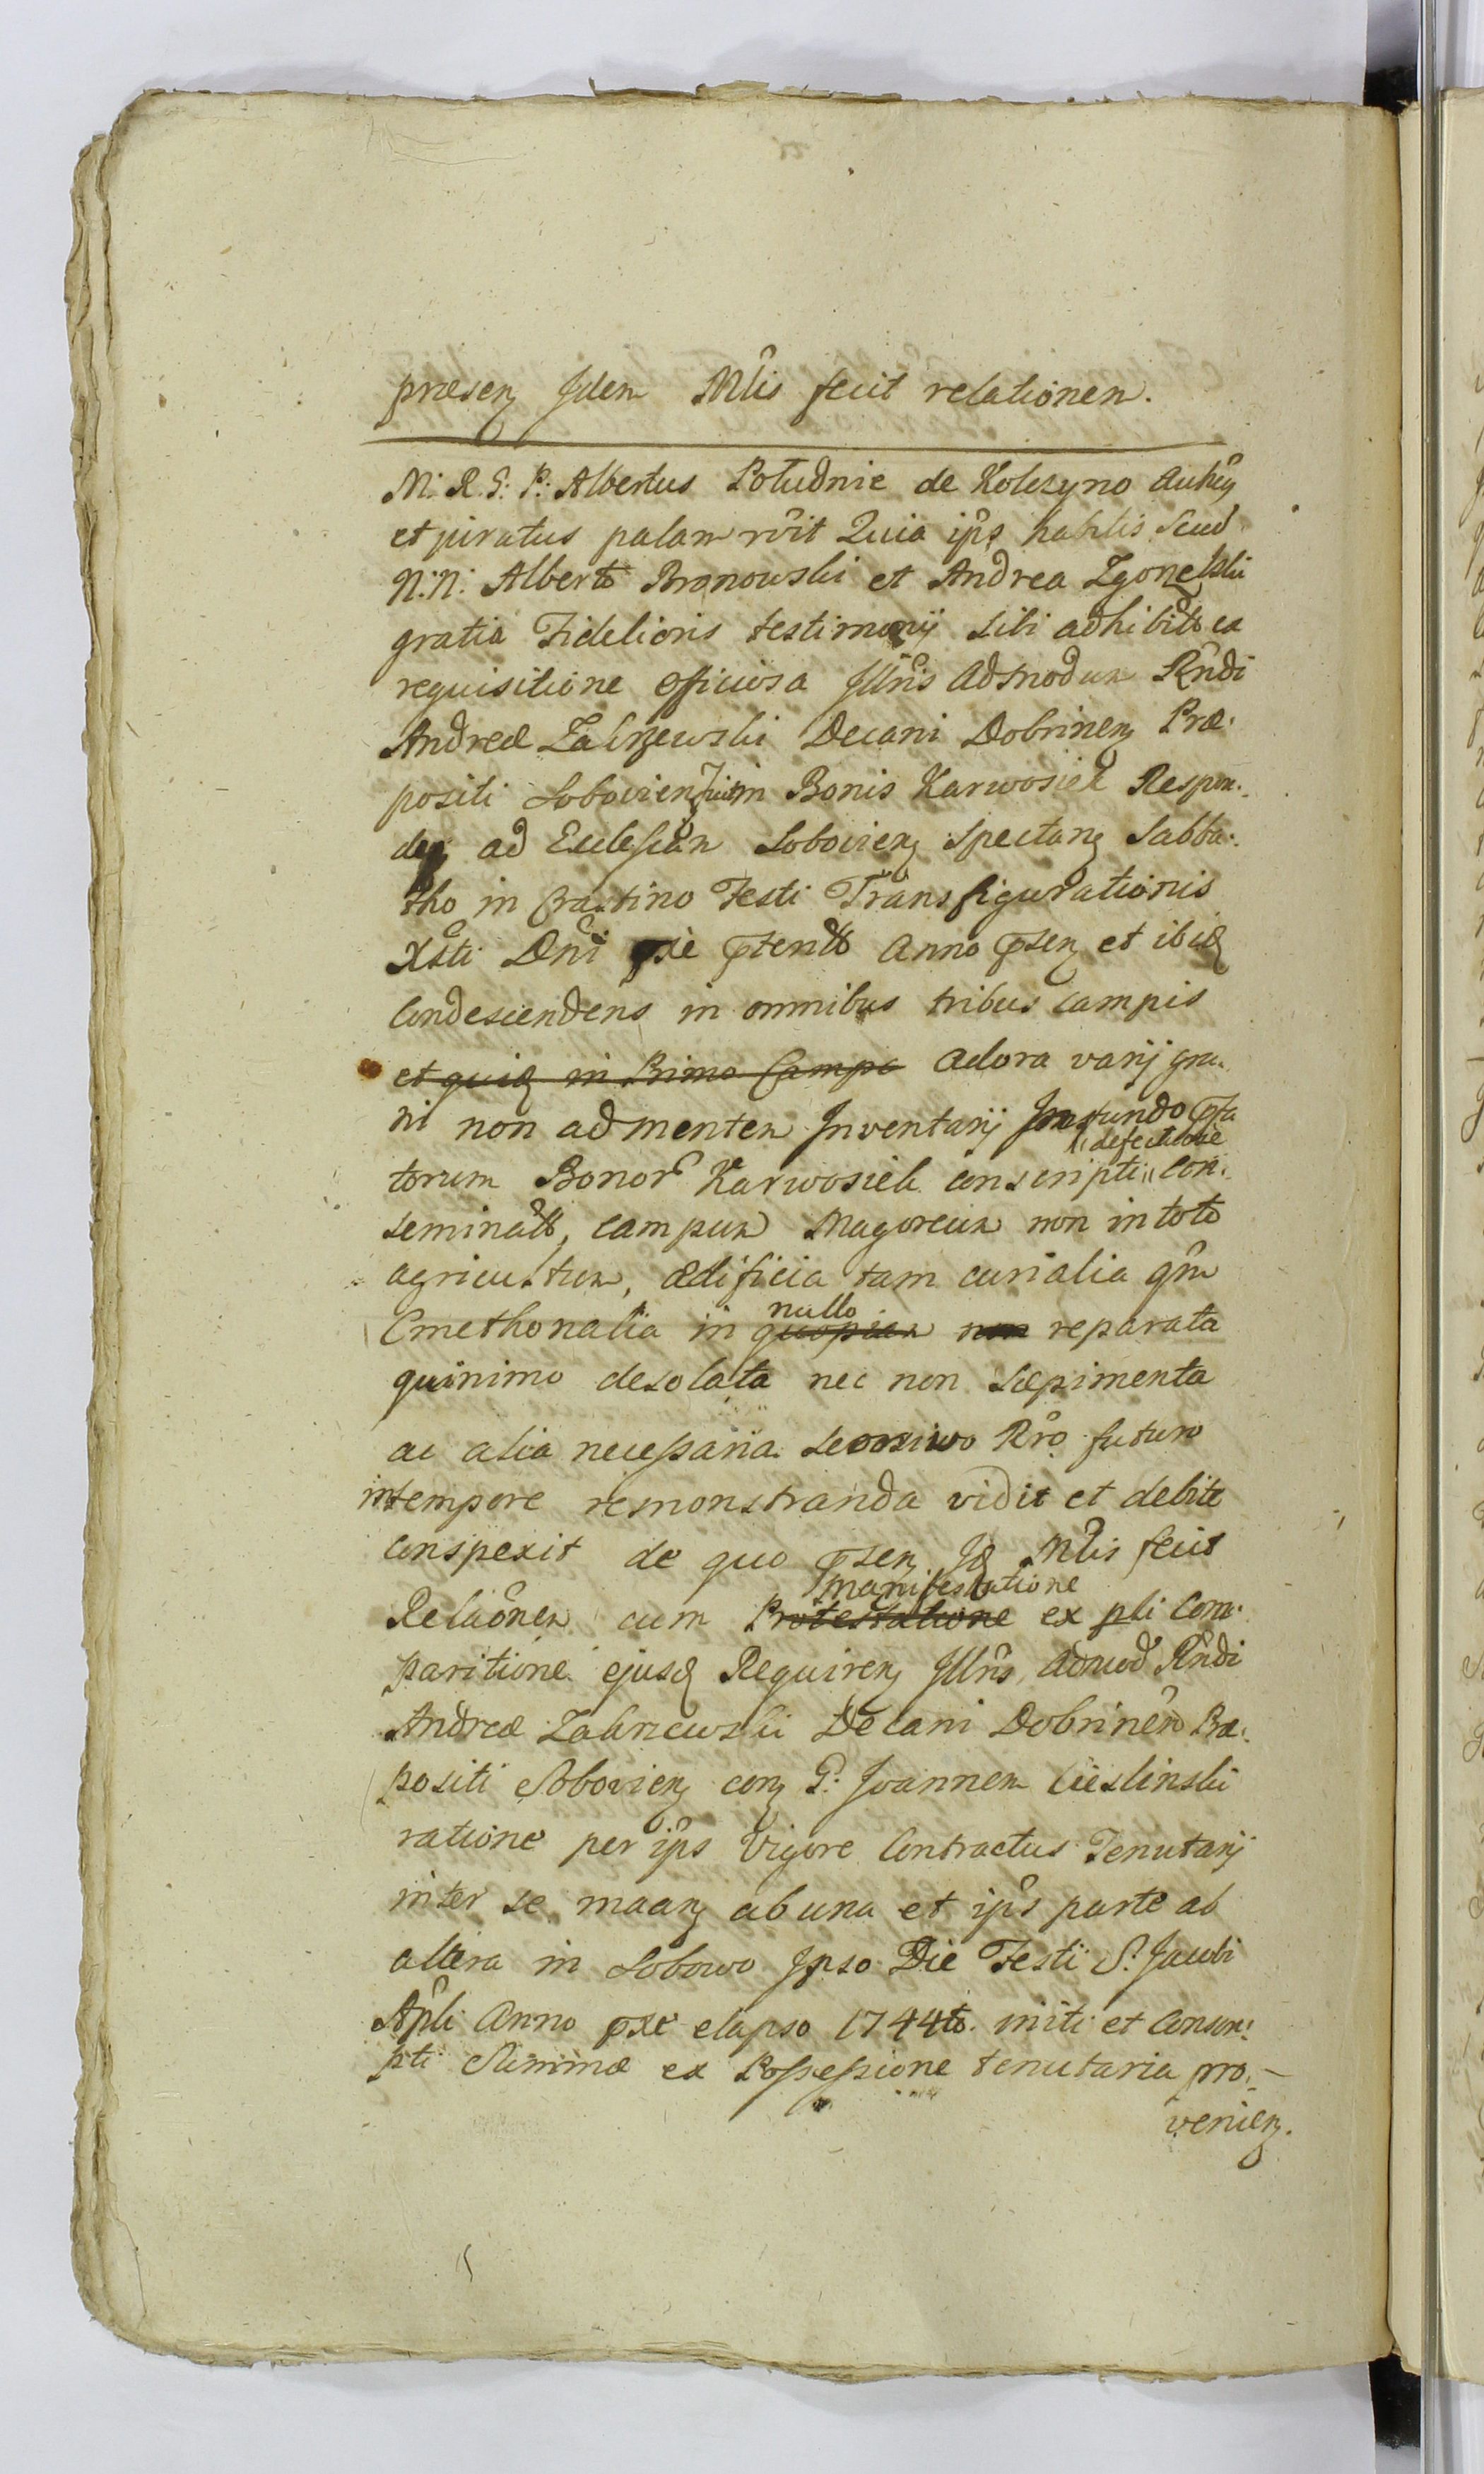 præsenz Idem Mlis fecit relationem.
M: R. G: P: Albertus Południe de Kolczyno authen
et juratus palam rvit Quia ips habtis secud
N: N: Alberto Bronowski et Andrea Zgonelski
gratia Fidelioris testimonij sibi adhibito ex
requisitione officiosa Illris Admodum Rndi
Andreæ Zakrzewski Decani Dobrinenz Præ:
positi Sobovienz fuit in Bonis Karwosiek Respon:
denz ad Ecclesiam Sobovienz Spectanz Sabba:
tho in Crastino Festi Transfigurationis
Xsti Dni pxie pterito Anno psenz et ibidz
Condescendens in omnibus tribus campis
et quidz in Primo Campo adora varij gra:
ni non ad mentem Inventarij in fundo pta
defectuose
torum Bonor Karwosiek conscripti con:
seminata, campum Magorcum non in toto
agricultum, ædificia tam curialia qm
nullo
Cmethonalia in quopiam non reparata
quinimo desolata nec non sæpimenta
ac alia necessaria sermivo Rro futuro
in tempore remonstranda vidit et debite
conspexit de quo psenz Idz Mlis fecit
manifestatione
Relaonem cum Protestatione ex pli Com:
paritione ejusdz Requirenz Illris Admod Rndi
Andreæ Zakrzewski Decani Dobrinen Præ:
positi Sobovienz conz G: Joannem Cieslinski
ratione per ips Vigore Contractus Tenutarij
inter se maanz ab una et ips parte ab
altera in Sobowo Ipso Die Festi S: Jacobi
Apli Anno pxe elapso 1744to initi et Conscri:
pti Summæ ex Possessione tenutaria pro:
venienz.